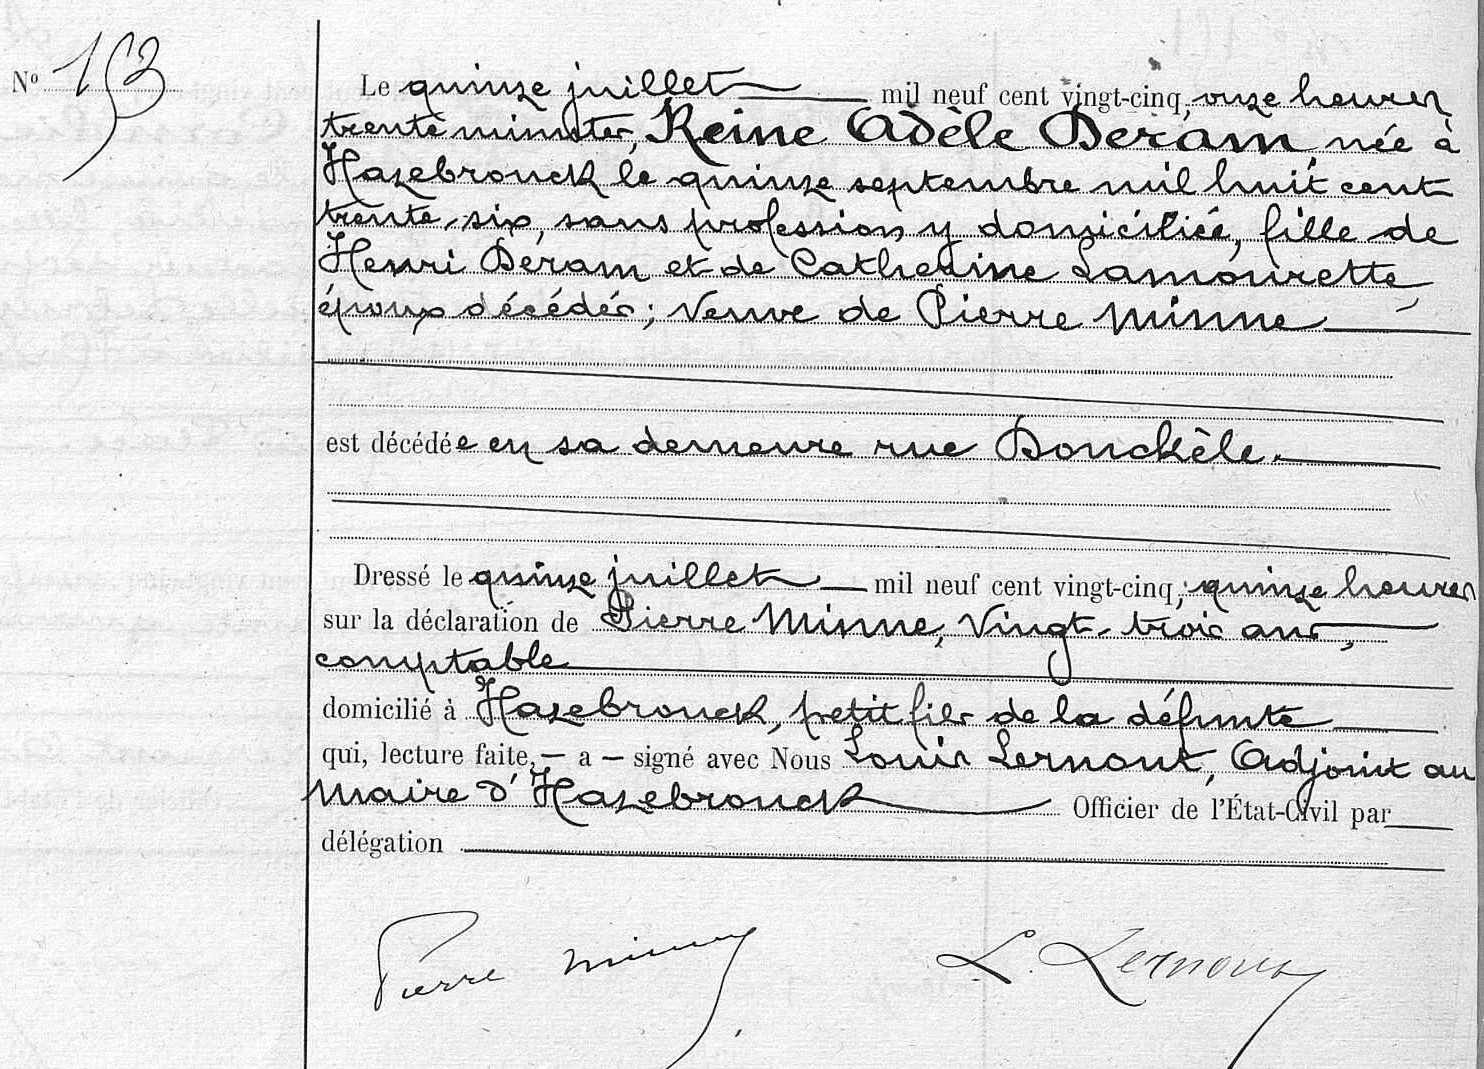 N° 153
Le quinze juillet mil neuf cent vingt-cinq, onze heures
trente minutes, Reine Adèle Deram, née à
Hazebrouck le quinze septembre mil huit cent
trente-six, sans profession y domiciliée, fille de
Henri Deram et de Catherine Lamourette,
époux décédés; Veuve de Pierre Minne
est décédée en sa demeure rue Donckèle.
Dressé le quinze juillet mil neuf cent vingt-cinq, quinze heures
sur la déclaration de Pierre Minne, Vingt-trois ans,
comptable
domicilié à Hazebrouck, petit fils de la défunte
qui, lecture faite, – a – signé avec Nous Louis Lernout, Adjoint au
Maire d'Hazebrouck Officier de l'État-Civil par
délégation
Pierre Minne L. Lernout